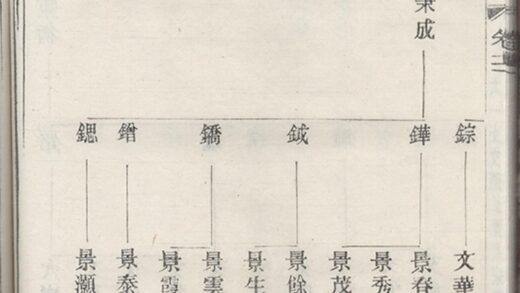 卷
秉成
錝
鏵
鉞
鐈
鏳
鍶
文華
景春
景秀
景茂
景餘
景生
景雲
景霞
景泰
景灝